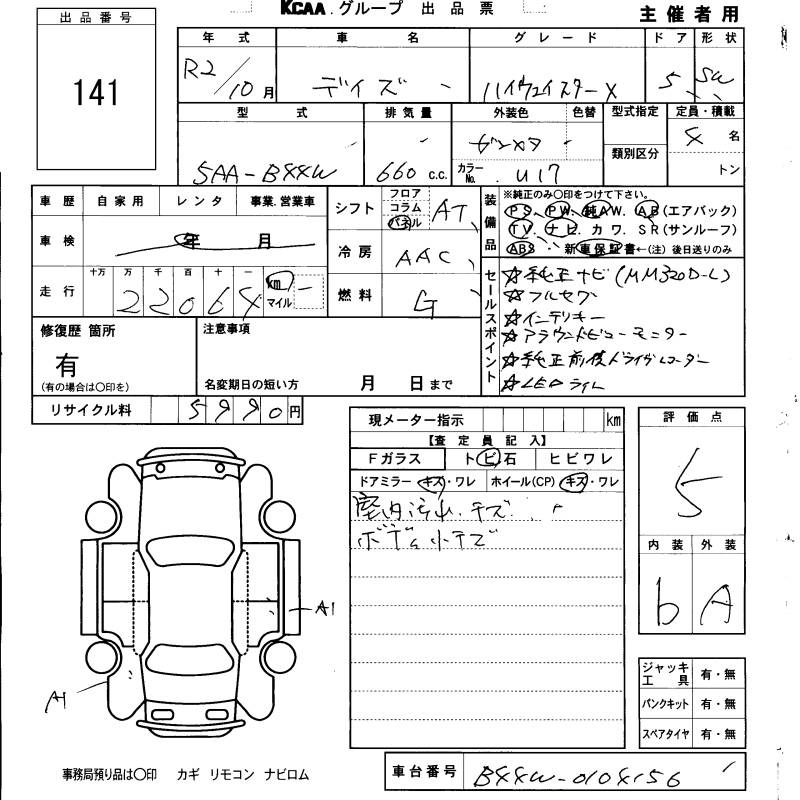 KCAA.グループ 出品票
主催者用
出品番号
141
年式 車名 グレード ドア 形状
R2/10月 デイズ ハイウェイスターX 5 SW
型式 排気量 外装色 色替 型式指定 定員・積載
5AA-B44W 660 c.c. ガンメタ 4名
カラーNo. U17 類別区分 トン
車歴 自家用 レンタ 事業.営業車
シフト フロア コラム パネル AT
装備品 ※純正のみ〇印をつけて下さい。
PS. PW. 純AW. AB(エアバック)
TV. ナビ. カワ. SR(サンルーフ)
ABS 新車保証書←(注) 後日送りのみ
車検 年 月
冷房 AAC
走行 十万 万 千 百 十 一
22064 km マイル
燃料 G
セールスポイント
☆純正ナビ(MM320D-L)
☆フルセグ
☆インテリキー
☆アラウンドビューモニター
☆純正前後ドライブレコーダー
☆LEDライト
修復歴 箇所
有
(有の場合は〇印を)
注意事項
名変期日の短い方 月 日まで
リサイクル料 5990円
現メーター指示 km
【査定員記入】
Fガラス トビ石 ヒビワレ
ドアミラー キズ・ワレ ホイール(CP) キズ・ワレ
室内汚れ.キズ
ボディ小キズ
評価点
5
内装 外装
b A
A1
A1
ジャッキ工具 有・無
パンクキット 有・無
スペアタイヤ 有・無
事務局預り品は〇印 カギ リモコン ナビロム
車台番号 B44W-0104156